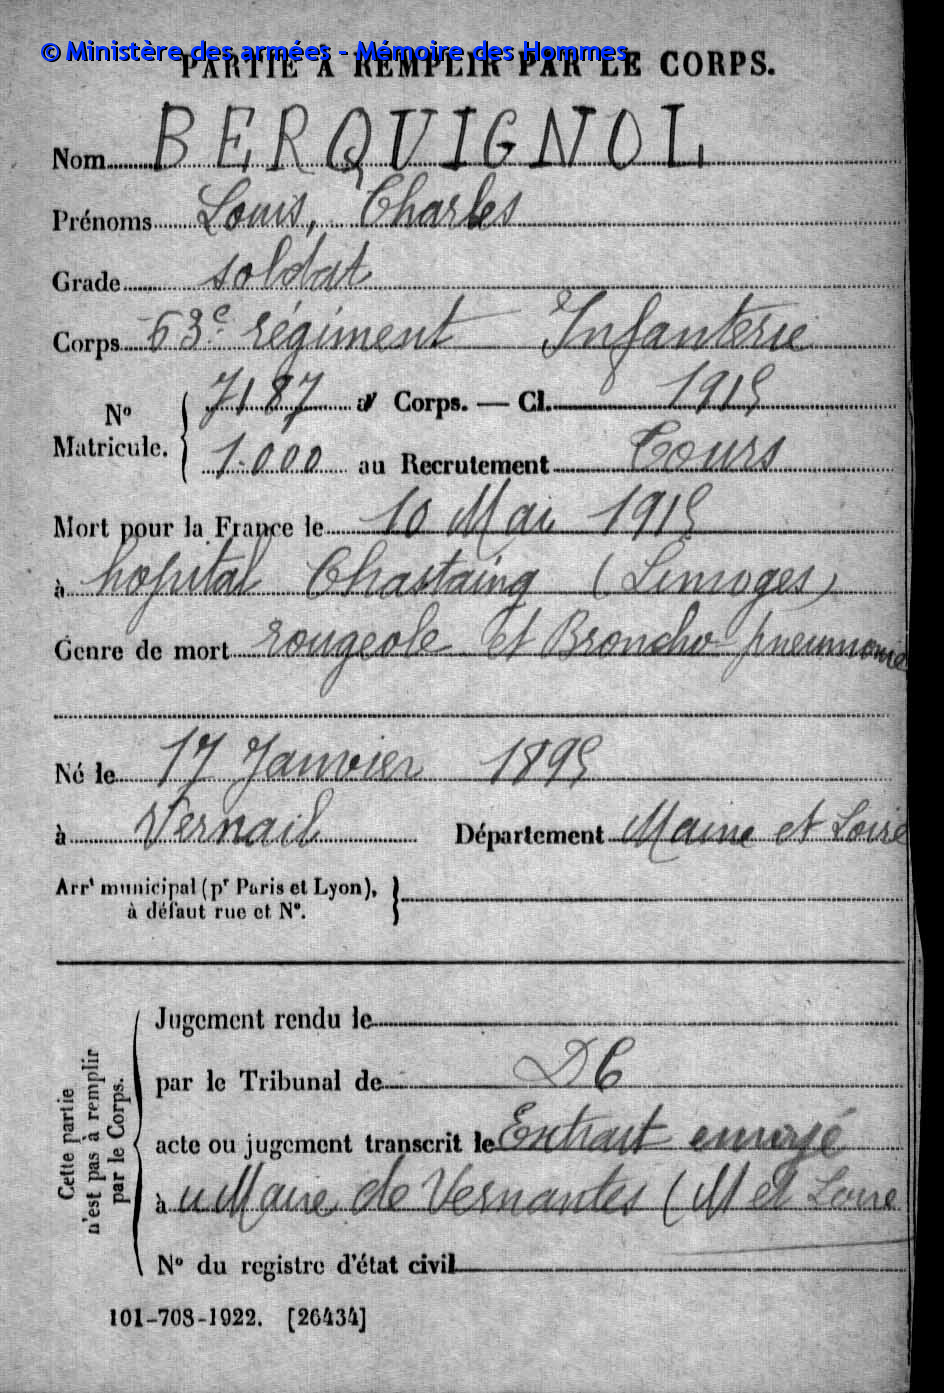 © Ministère des armées - Mémoire des Hommes
PARTIE À REMPLIR PAR LE CORPS.
Nom BERQUIGNOL
Prénoms Louis, Charles
Grade soldat
Corps 63e régiment Infanterie
No Matricule. 7187 au Corps. — Cl. 1915
1.000 au Recrutement Tours
Mort pour la France le 10 Mai 1915
à hopital Chastaing (Limoges)
Genre de mort rougeole et Broncho-pneumonie
Né le 17 Janvier 1895
à Vernail Département Maine et Loire
Arrt municipal (pr Paris et Lyon),
à défaut rue et No.
Cette partie
n'est pas à remplir
par le Corps.
Jugement rendu le
par le Tribunal de DC
acte ou jugement transcrit le Extrait envoyé
à u Maire de Vernantes (M et Loire
No du registre d'état civil
101-708-1922. [26434]